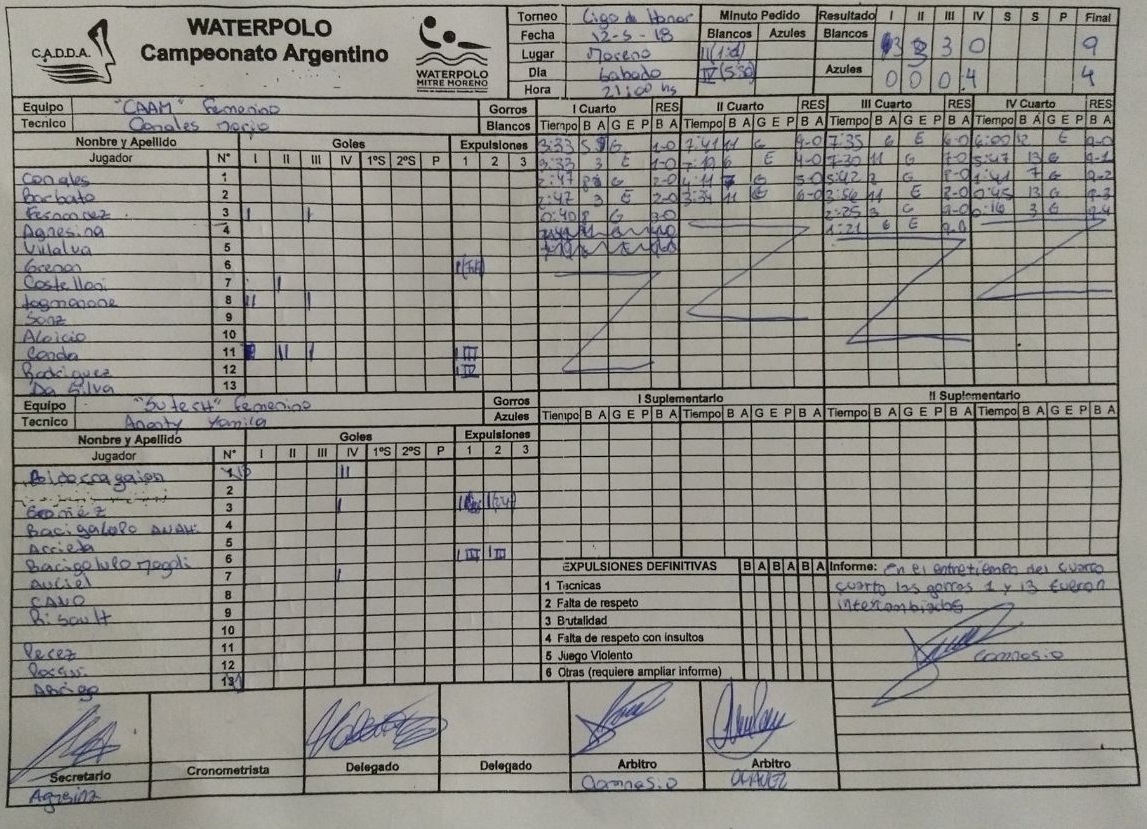 C.A.D.D.A.
WATERPOLO
Campeonato Argentino
WATERPOLO
MITRE MORENO
Torneo Liga de Honor
Fecha 12-5-18
Lugar Moreno
Dia Sabado
Hora 21:00 hs
Minuto Pedido
Blancos Azules
Resultado I II III IV S S P Final
Blancos 3 3 3 0 9
Azules 0 0 0 4 4
Equipo "CAAM" Femenino Gorros
Tecnico Canales Blancos
Nombre y Apellido Goles Expulsiones
Jugador N° I II III IV 1ºS 2ºS P 1 2 3
I Cuarto RES II Cuarto RES III Cuarto RES IV Cuarto RES
Tiempo B A G E P B A Tiempo B A G E P B A Tiempo B A G E P B A Tiempo B A G E P B A
3:33 5 G 1-0 7:41 11 G 4-0 7:35 6 E 6-0 6:00 12 E 9-0
3:33 3 E 1-0 6 E 4-0 7:30 11 G 7-0 5:47 13 G 9-1
2:47 8 G 2-0 4:11 7 G 5-0 5:42 G 8-0 7 G 9-2
2:47 3 E 2-0 3:34 11 6-0 3:56 11 E 8-0 0:45 13 G 9-3
0:40 8 G 3-0 2:25 3 G 9-0 0:16 3 G 9-4
1:21 6 E 9-0
Canales 1
Barbato 2
Fernandez 3
Agnesina 4
Villalva 5
Grenon 6
Castellani 7
8
Sanz 9
Aloisio 10
Conda 11
Rodriguez 12
Da Silva 13
Equipo "SUTECH" Femenino Gorros
Tecnico Yamila Azules
Nombre y Apellido Goles Expulsiones
Jugador N° I II III IV 1ºS 2ºS P 1 2 3
I Suplementario II Suplementario
Tiempo B A G E P B A Tiempo B A G E P B A Tiempo B A G E P B A Tiempo B A G E P B A
2
Gomez 3
Bacigalupo ANAH. 4
Arrieta 5
Bacigalupo Magali 6
Auciel 7
CANO 8
Risault 9
10
Perez 11
12
Abrigo 13
EXPULSIONES DEFINITIVAS B A B A B A
1 Tecnicas
2 Falta de respeto
3 Brutalidad
4 Falta de respeto con insultos
5 Juego Violento
6 Otras (requiere ampliar informe)
Informe: En el entretiempo del cuarto
cuarto los gorros 1 y 13 fueron
intercambiados
Camnasio
Secretario Cronometrista Delegado Delegado Arbitro Arbitro
Agnesina Camnasio CHAVEZ